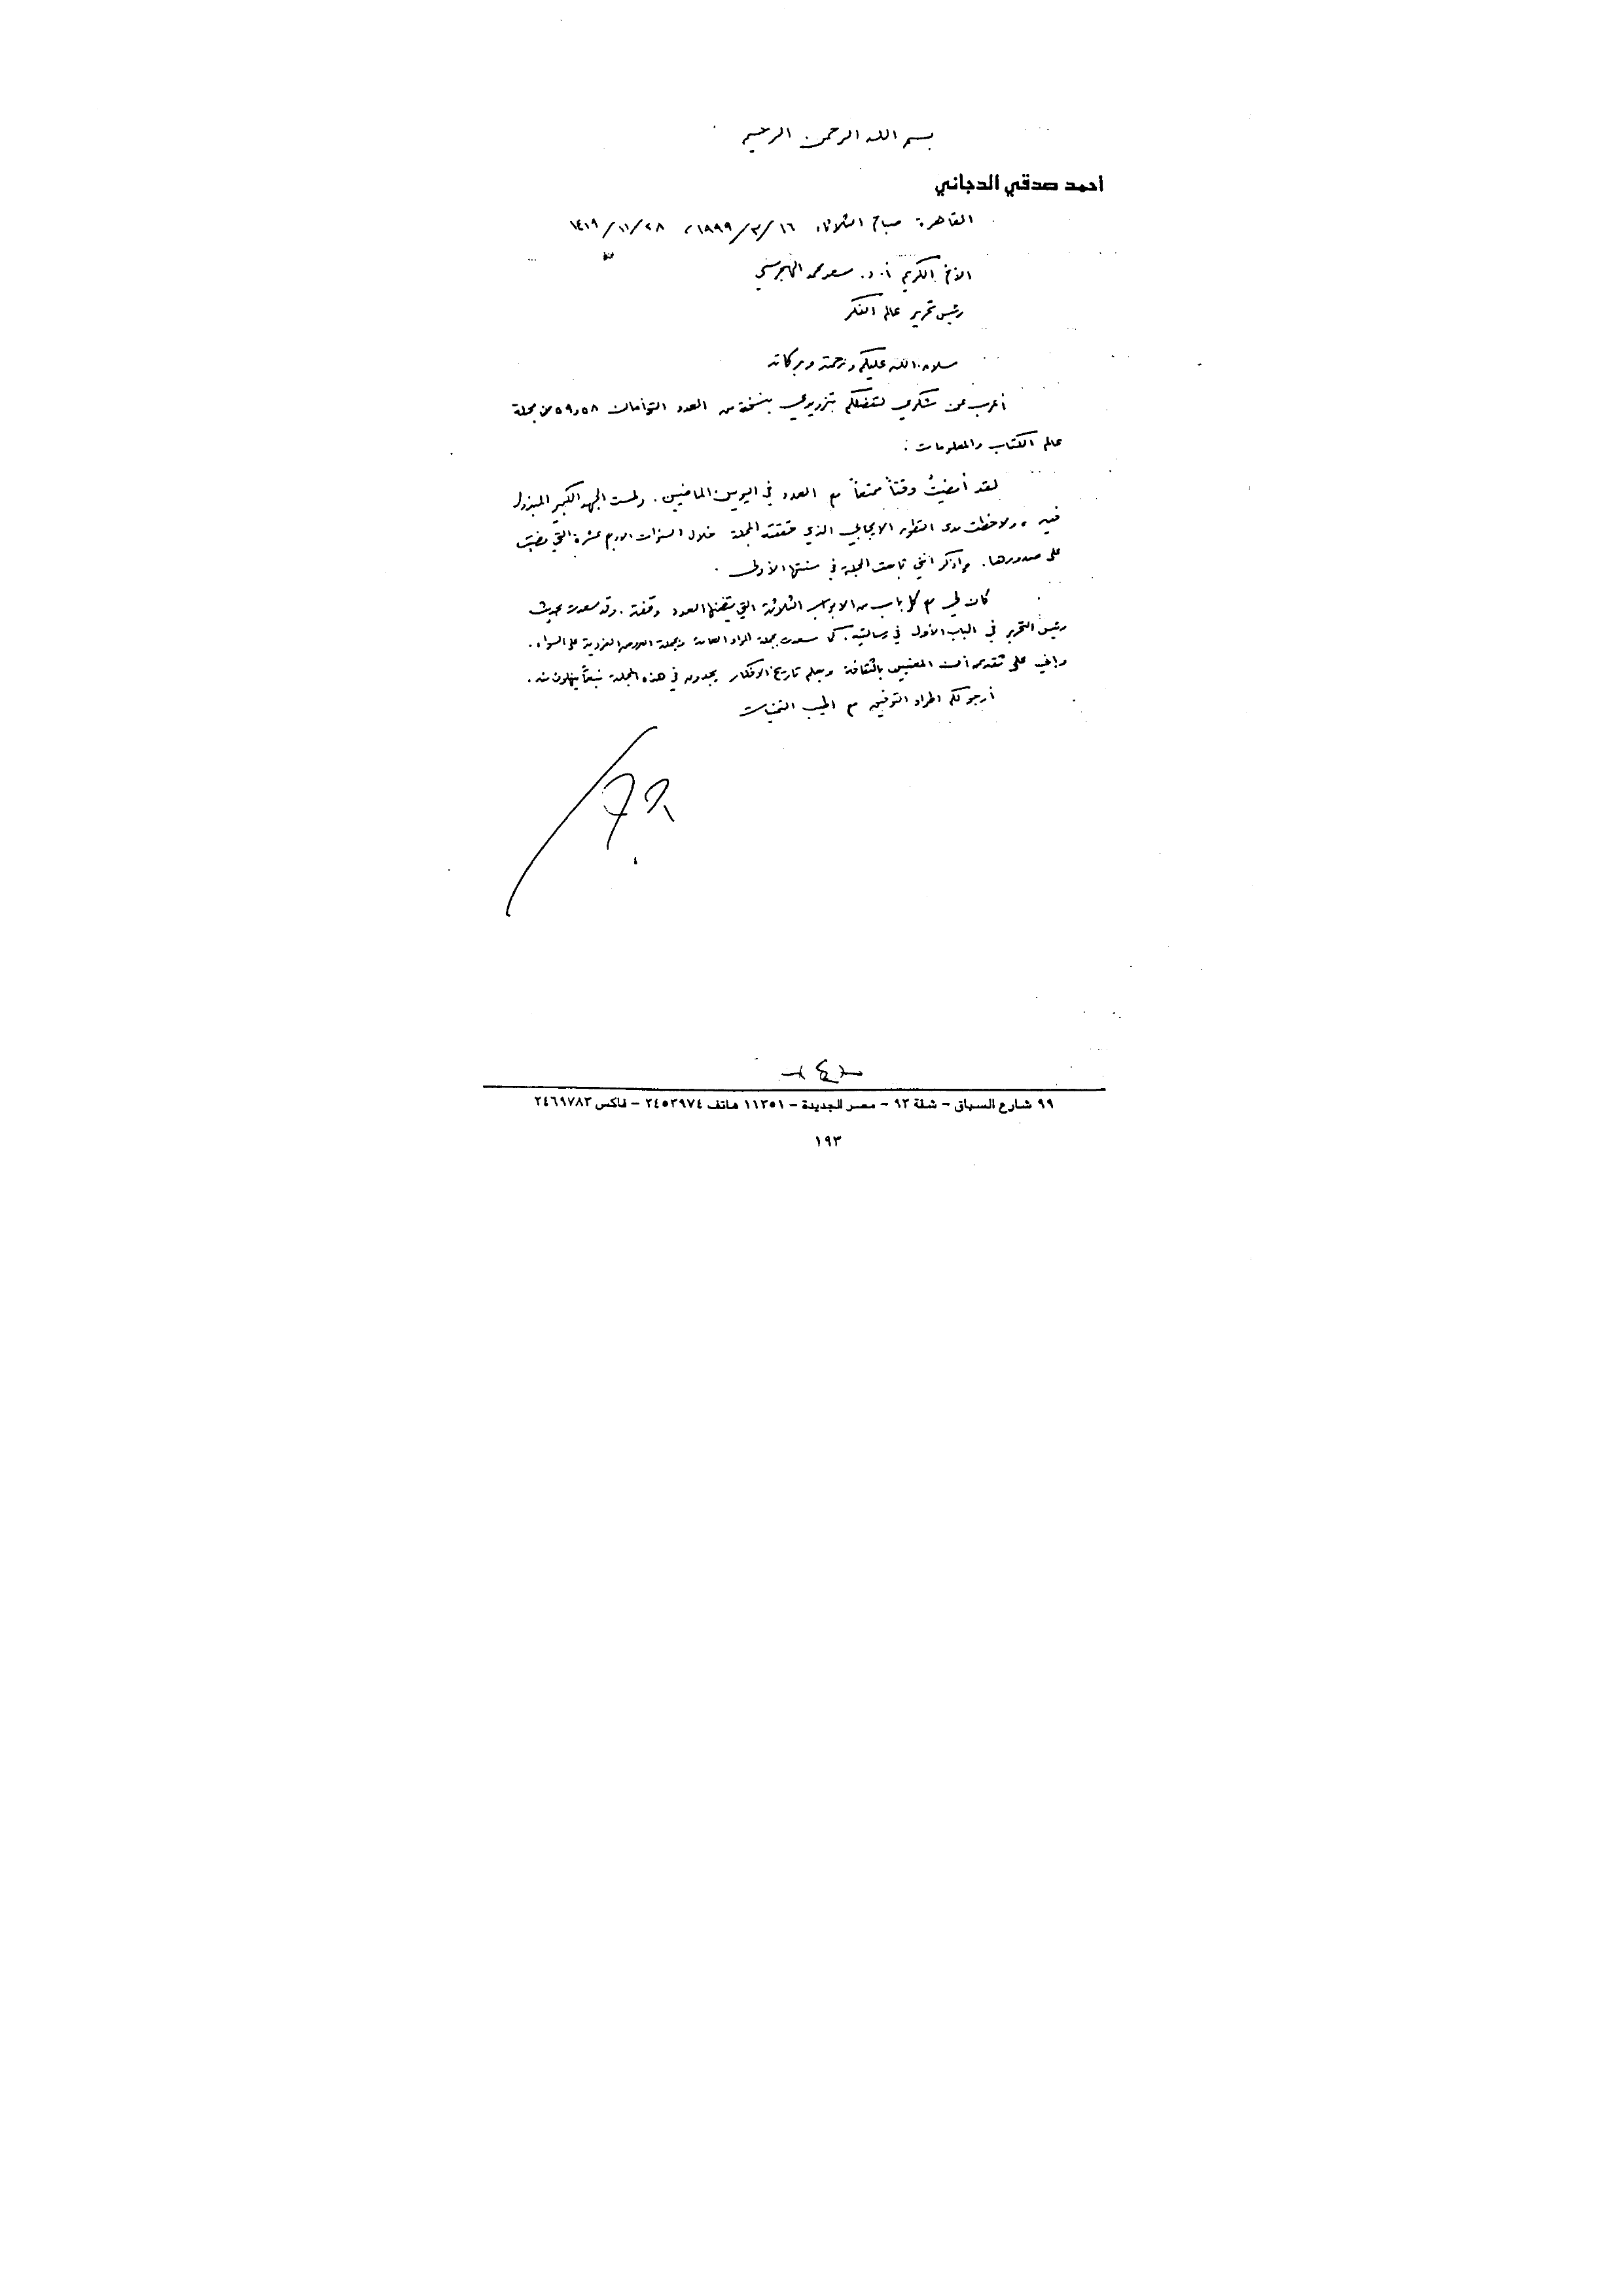 بسم الله الرحمن الرحيم
أحمد صدقي الدجاني
القاهرة صباح الثلاثاء ١٦/٣/١٩٩٩، ٢٨/١١/١٤١٩
الأخ الكريم أ. د. سعد محمد الهجرسي
رئيس تحرير عالم الفكر
سلام الله عليكم ورحمته وبركاته
أعرب عن شكري لتفضلكم بتزويدي بنسخة من العدد التوأمان ٥٨ و٥٩ من مجلة
عالم الكتاب والمعلومات :
لقد أمضيتُ وقتاً ممتعاً مع العدد في اليومين الماضيين. ولمست الجهد الكبير المبذول
فيه، ولاحظت مدى التطور الايجابي الذي حققته المجلة خلال السنوات الاربع عشرة التي مضت
على صدورها. واذكر أنني تابعت المجلة في سنتها الأولى.
كان لي مع كل باب من الابواب الثلاثة التي يتضمنها العدد وقفة. وقد سعدت بحديث
رئيس التحرير في الباب الأول في رسالتيه. كما سعدت بجملة المواد العامة وبجملة العروض الفردية على السواء.
وإني على ثقة من أن المعنيين بالثقافة وبعلم تاريخ الافكار يجدون في هذه المجلة نبعاً ينهلون منه.
أرجو لكم اطراد التوفيق مع اطيب التمنيات
-٤-
٩٩ شارع السباق - شقة ٩٢ - مصر الجديدة - ١١٣٥١ هاتف ٢٤٥٣٩٧٤ - فاكس ٢٤٦٩٧٨٣
١٩٣